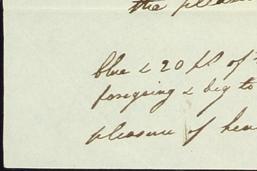 the pleasu
blue & 20 lb of
foregoing & beg to
pleasure of hea